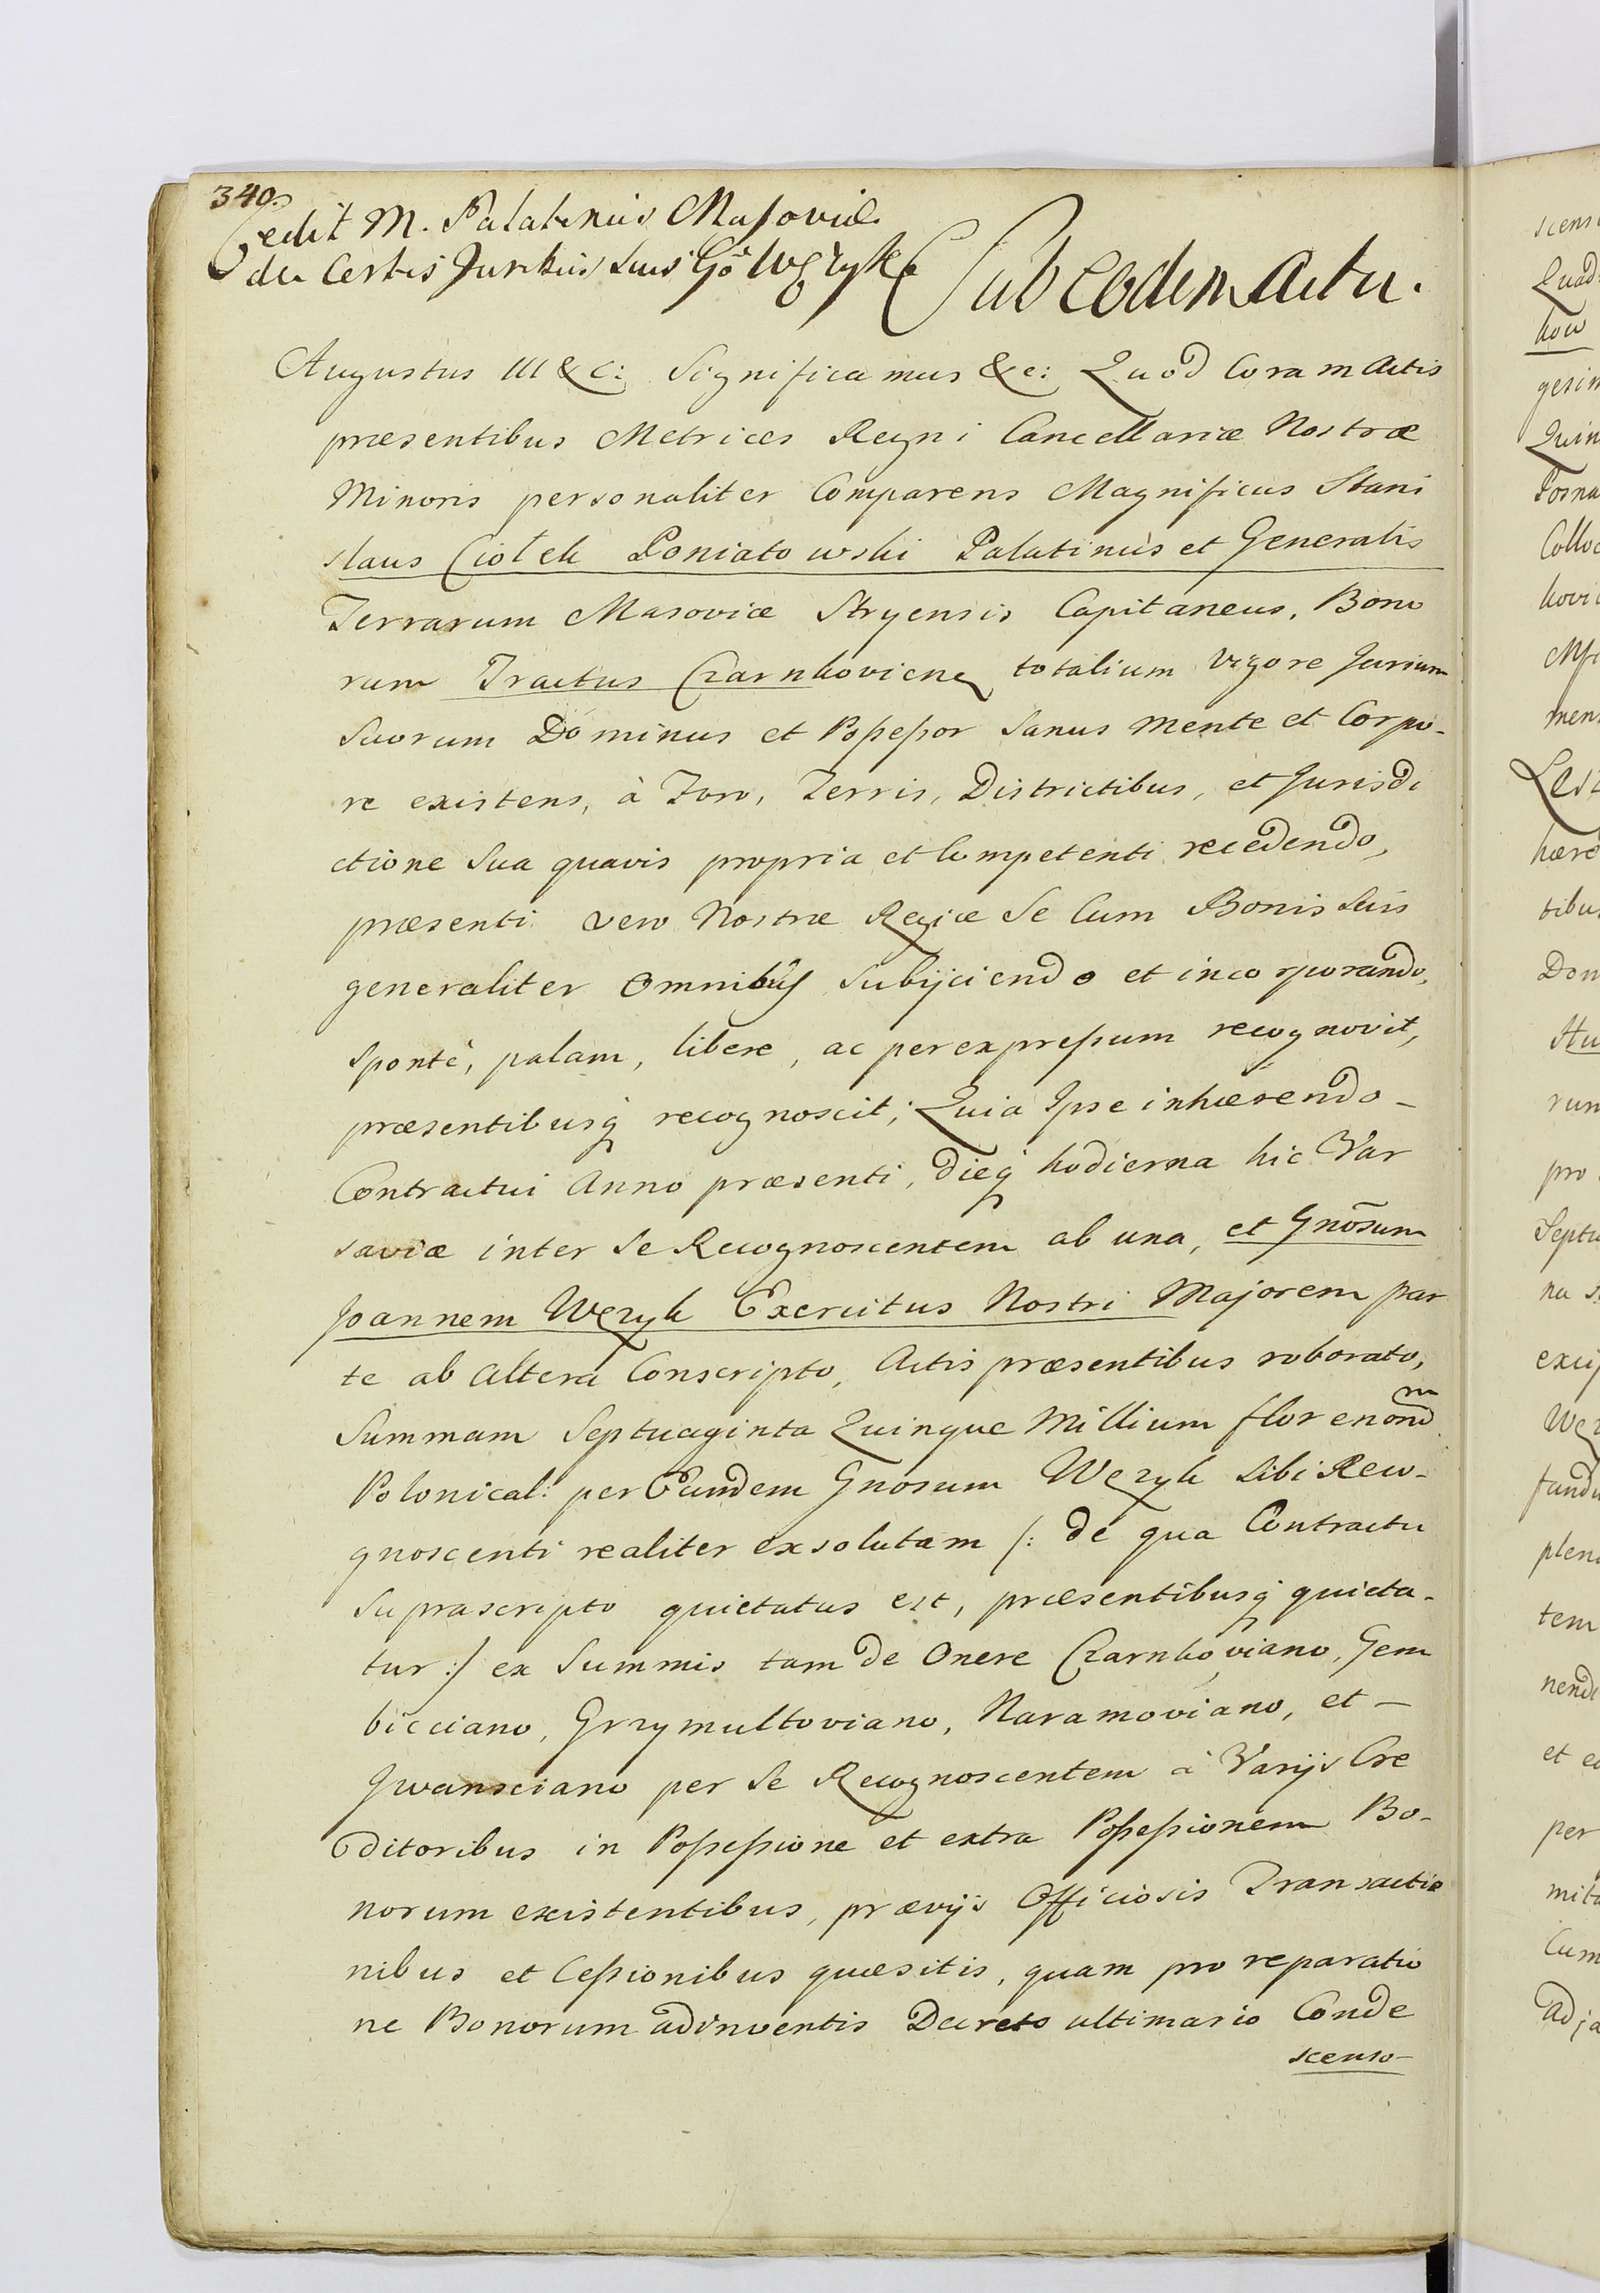 340.
Cedit M. Palatinus Masoviæ
de Certis Juribus suis Gō Węzyk
Sub eodem Actu.
Augustus III &c: Significamus &c: Quod Coram Actis
præsentibus Metrices Regni Cancellariæ Nostræ
Minoris personaliter Comparens Magnificus Stani
slaus Ciołek Poniatowski Palatinùs et Generalis
Terrarum Masoviæ Stryensis Capitaneus, Bono
rum Tractus Czarnkoviens totalium Vigore Jurium
Suorum Dominus et Possessor Sanus Mente et Corpo-
re existens, à Foro, Terris, Districtibus, et Jurisdi
ctione Sua quavis propria et Competenti recedendo,
præsenti vero Nostræ Regiæ Se Cum Bonis Suis
generaliter Omnibus Subijciendo et incorporando,
Spontè, palam, libere, ac per expressum recognovit,
præsentibusq recognoscit; Quia Ipse inhærendo-
Contractui Anno præsenti, dieq hodierna hic Var
saviæ inter Se Recognoscentem ab una, et Gnõsum
Joannem Węzyk Exercitus Nostri Majorem par
te ab Altera Conscripto, Actis præsentibus roborato,
Summam Septuaginta Quinque Millium florenorum
Polonical: per Eundem Gnosum Węzyk Sibi Reco-
gnoscenti realiter exsolutam /: de qua Contractu
Suprascripto quietatus est, præsentibusq quieta-
tur :/ ex Summis tam de Onere Czarnkoviano, Gem
bicciano, Grzymultoviano, Naramoviano, et -
Jwansciano per Se Recognoscentem à Varijs Cre
ditoribus in Possessione et extra Possessionem Bo-
norum existentibus, prævijs Officiosis Transactio
nibus et Cessionibus quæsitis, quam pro reparatio
ne Bonorum adinventis Decreto ultimario Conde
scenso-